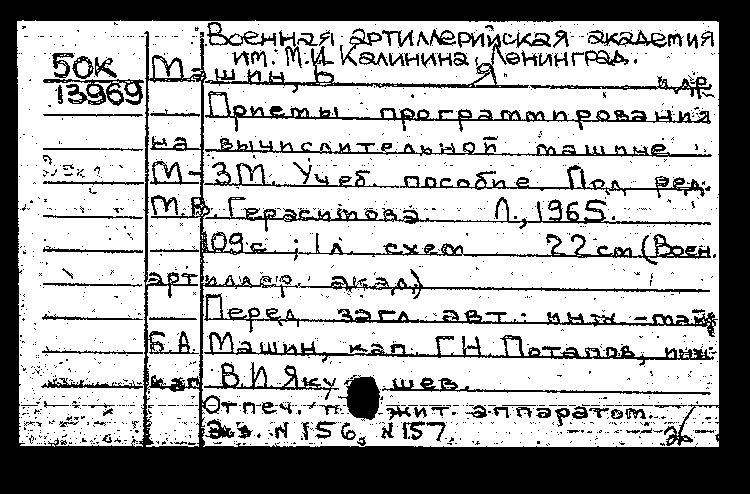 Военная артиллерийская академия
им. М.И. Калинина, Ленинград.
50К
13969
Машин, Б Я и др
Приемы программирования
на вычислительной машине
М-3М. Учеб. пособие. Под ред.
М.В. Герасимова. Л., 1965.
109с ; 1л. схем 22см (Воен.
артиллер. акад.)
Перед загл авт.: инж-майор
Б.А. Машин, кап. Г.Н. Потапов, инж-
кап В.И. Якушев.
Отпеч. множит. аппаратом.
Экз. N 156, N 157.